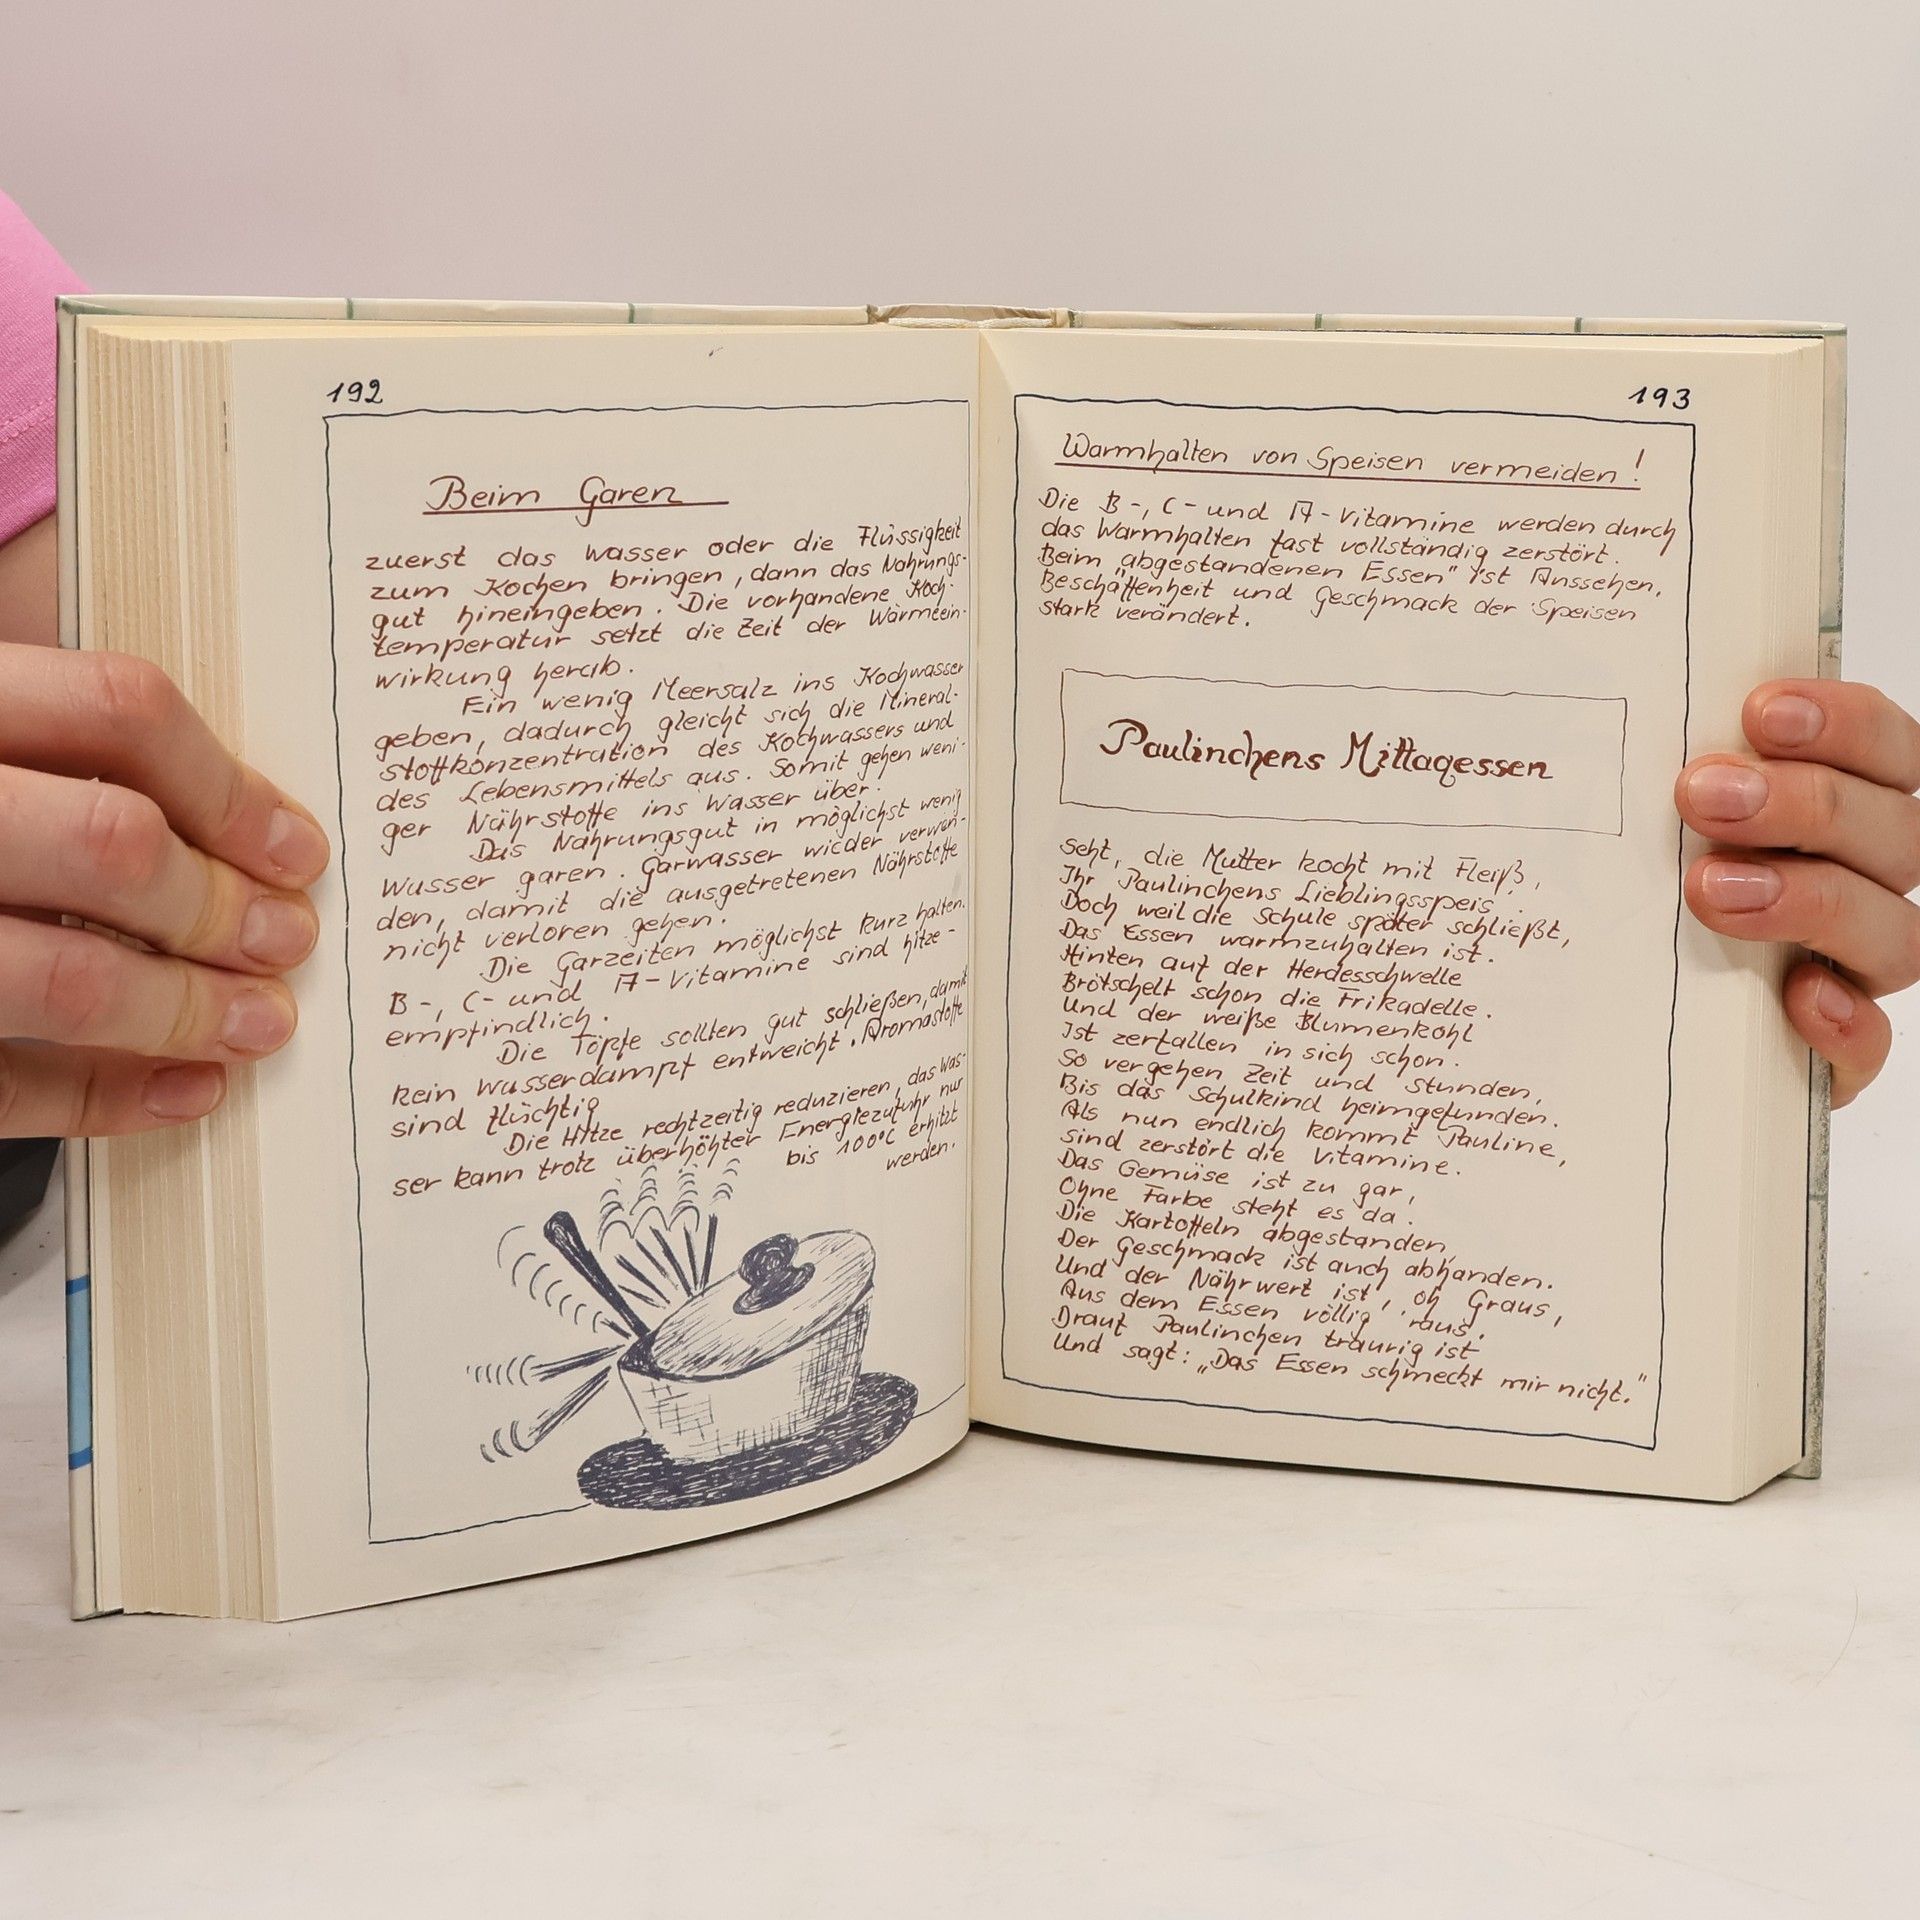 192
Beim Garen
zuerst das Wasser oder die Flüssigkeit
zum Kochen bringen, dann das Nahrungs-
gut hineingeben. Die vorhandene Koch-
temperatur setzt die Zeit der Wärmeein-
wirkung herab.
Ein wenig Meersalz ins Kochwasser
geben, dadurch gleicht sich die Mineral-
stoffkonzentration des Kochwassers und
des Lebensmittels aus. Somit gehen weni-
ger Nährstoffe ins Wasser über.
Das Nahrungsgut in möglichst wenig
Wasser garen. Garwasser wieder verwen-
den, damit die ausgetretenen Nährstoffe
nicht verloren gehen.
Die Garzeiten möglichst kurz halten.
B-, C- und A-Vitamine sind hitze-
empfindlich.
Die Töpfe sollten gut schließen, damit
kein Wasserdampf entweicht. Aromastoffe
sind flüchtig
Die Hitze rechtzeitig reduzieren, das Was-
ser kann trotz überhöhter Energiezufuhr nur
bis 100°C erhitzt
werden.
193
Warmhalten von Speisen vermeiden!
Die B-, C- und A-Vitamine werden durch
das Warmhalten fast vollständig zerstört.
Beim „abgestandenen Essen" ist Aussehen,
Beschaffenheit und Geschmack der Speisen
stark verändert.
Paulinchens Mittagessen
Seht, die Mutter kocht mit Fleiß,
Ihr Paulinchens Lieblingsspeis'.
Doch weil die Schule später schließt,
Das Essen warmzuhalten ist.
Hinten auf der Herdesschwelle
Brötschelt schon die Frikadelle.
Und der weiße Blumenkohl
Ist zerfallen in sich schon.
So vergehen Zeit und Stunden,
Bis das Schulkind heimgefunden.
Als nun endlich kommt Pauline,
Sind zerstört die Vitamine.
Das Gemüse ist zu gar,
Ohne Farbe steht es da.
Die Kartoffeln abgestanden,
Der Geschmack ist auch abhanden.
Und der Nährwert ist, oh Graus,
Aus dem Essen völlig 'raus.
Drauf Paulinchen traurig ist
Und sagt: „Das Essen schmeckt mir nicht."